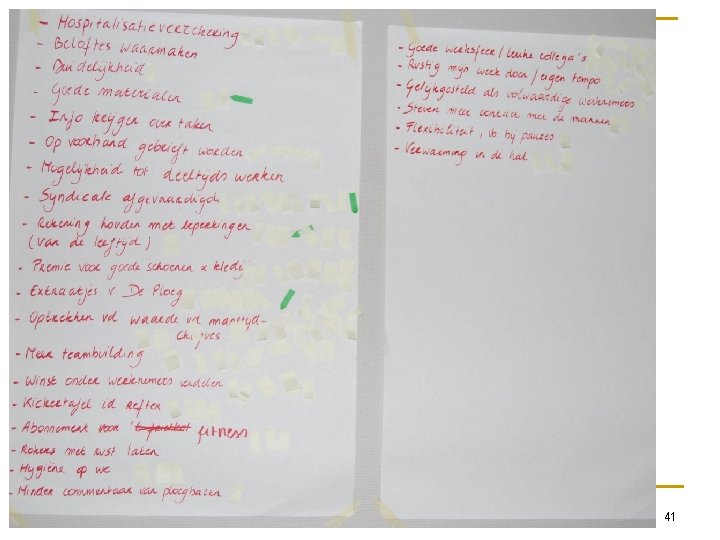 - Hospitalisatieverzekering
- Beloftes waarmaken
- Duidelijkheid
- Goede materialen
- Info krijgen over taken
- Op voorhand gebrieft worden
- Mogelijkheid tot deeltijds werken
- Syndicale afgevaardigde
- Rekening houden met beperkingen
(van de leeftijd)
- Premie voor goede schoenen & kledij
- Extraatjes v De Ploeg
- Optrekken vd waarde vd maaltijd-
cheques
- Meer teambuilding
- Winst onder werknemers verdelen
- Kickertafel id refter
- Abonnement voor fitness
- Rokers met rust laten
- Hygiëne op wc
- Minder commentaar van ploegbazen
- Goede werksfeer / leuke collega's
- Rustig mijn werk doen / eigen tempo
- Gelijkgesteld als volwaardige werknemers
- Steven meer contact met de mannen
- Flexibiliteit, vb. bij pauzes
- Verwarming in de hal
41